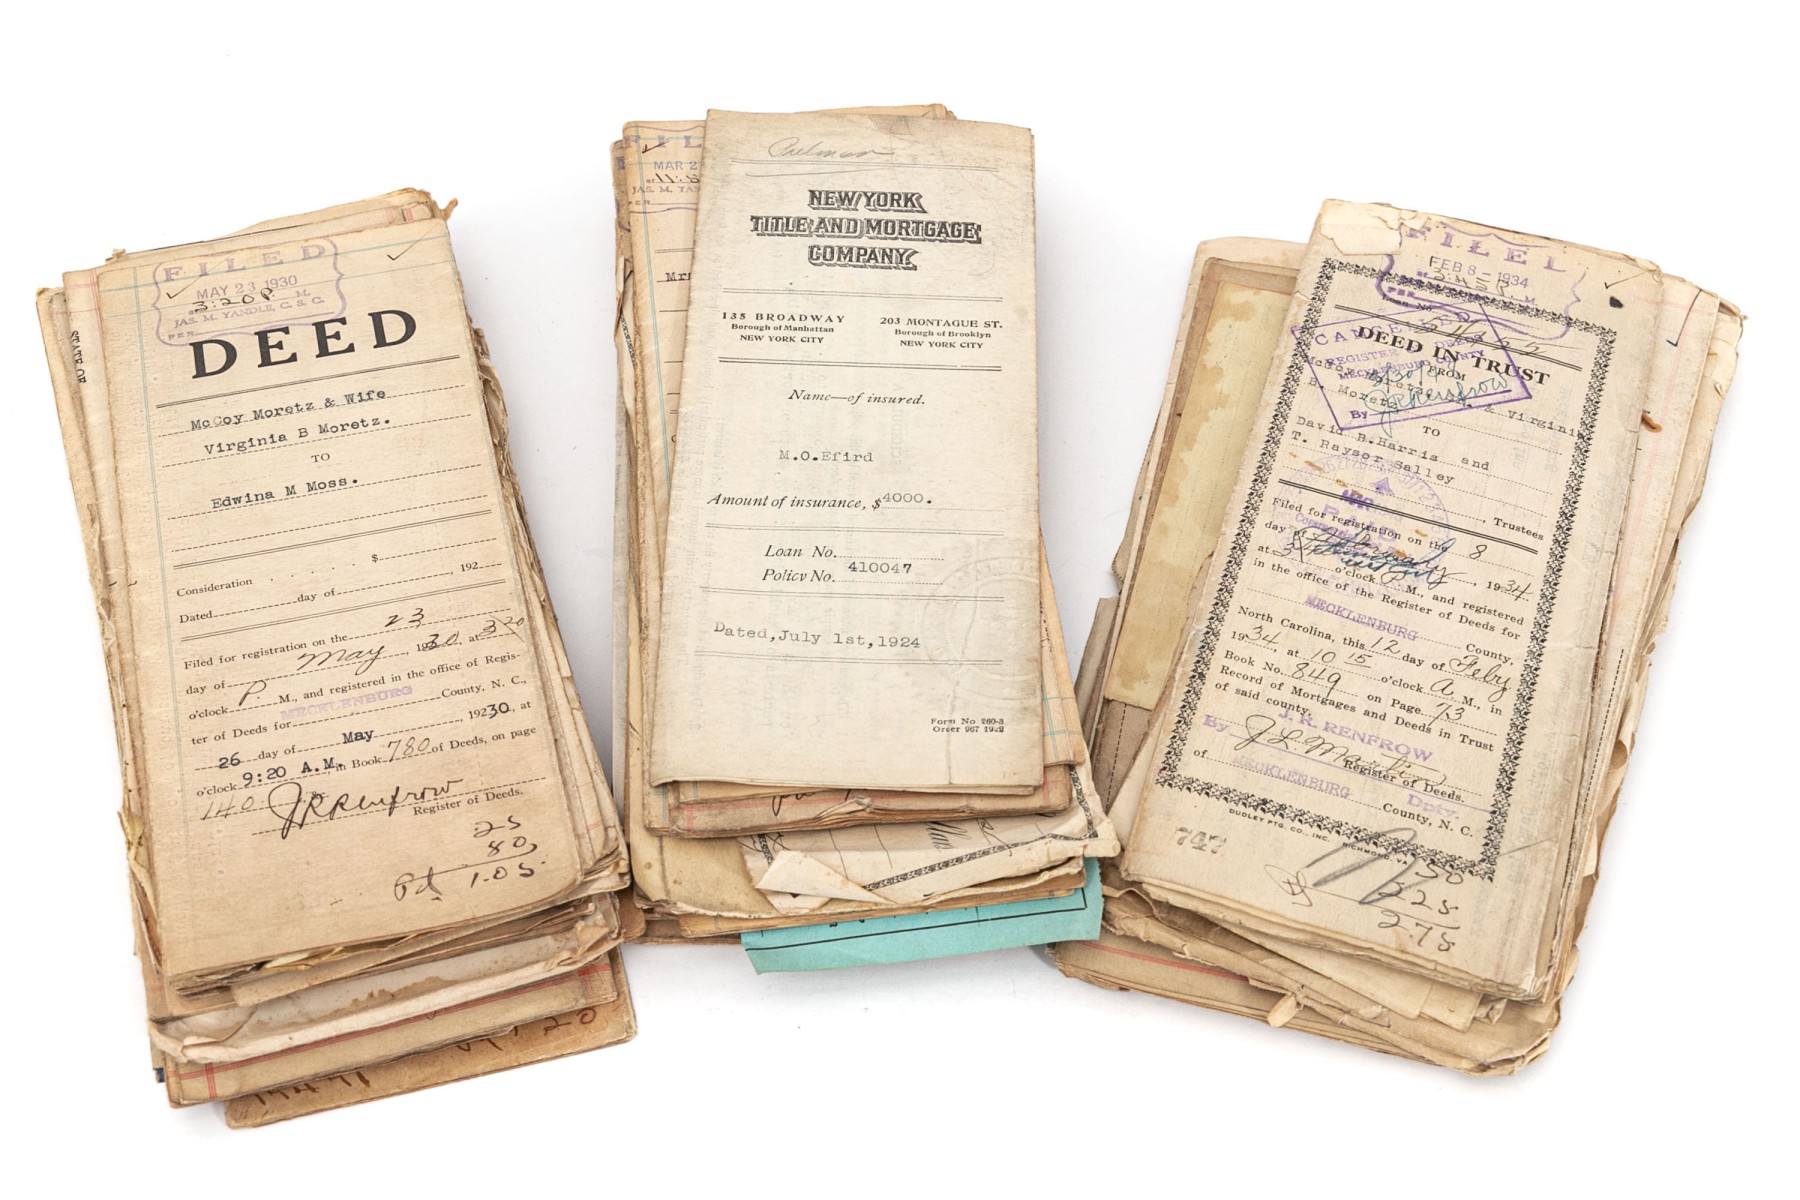 FILED
MAY 23 1930
at 3:20 P. M.
JAS. M. YANDLE, C. S. C.
PER
DEED
McCoy Moretz & Wife
Virginia B Moretz.
TO
Edwina M Moss.
Consideration . . . . . $
Dated day of , 192
Filed for registration on the 23
day of May , 1930, at 3 20
o'clock P. M., and registered in the office of Regis-
ter of Deeds for MECKLENBURG County, N. C.,
26 day of May , 19230, at
o'clock 9:20 A.M. in Book 780 of Deeds, on page
140 J R Renfrow
Register of Deeds.
25
80
Pd 1.05
STATE OF
20
FIL
MAR 2
at 11:5
JAS. M. YAN
PER
Mrs
NEW YORK
TITLE AND MORTGAGE
COMPANY
135 BROADWAY
Borough of Manhattan
NEW YORK CITY
203 MONTAGUE ST.
Borough of Brooklyn
NEW YORK CITY
Name—of insured.
M.O.Efird
Amount of insurance, $4000.
Loan No.
Policy No. 410047
Dated,July 1st,1924
Form No 260-3
Order 967 1922
FILED
FEB 8 - 1934
at 3:45 P. M.
PER
Loan No
DEED IN TRUST
FROM
McCoy Moretz & Virginia
B. Moretz
REGISTER OF DEEDS
MECKLENBURG COUNTY
By J R Renfrow
TO
David B.Harris and
T. Raysor Salley
, Trustees
Filed for registration on the 8
day of February , 1934
at 3 o'clock P. M., and registered
in the office of the Register of Deeds for
MECKLENBURG County,
North Carolina, this 12 day of Feby
1934, at 10 15 o'clock A M., in
Book No. 849 on Page 73
Record of Mortgages and Deeds in Trust
of said county.
J. R. RENFROW
By J. L. Martin
Register of Deeds.
Dpty.
of MECKLENBURG County, N. C.
DUDLEY PTG. CO., INC. RICHMOND, VA
747
50
225
2.75